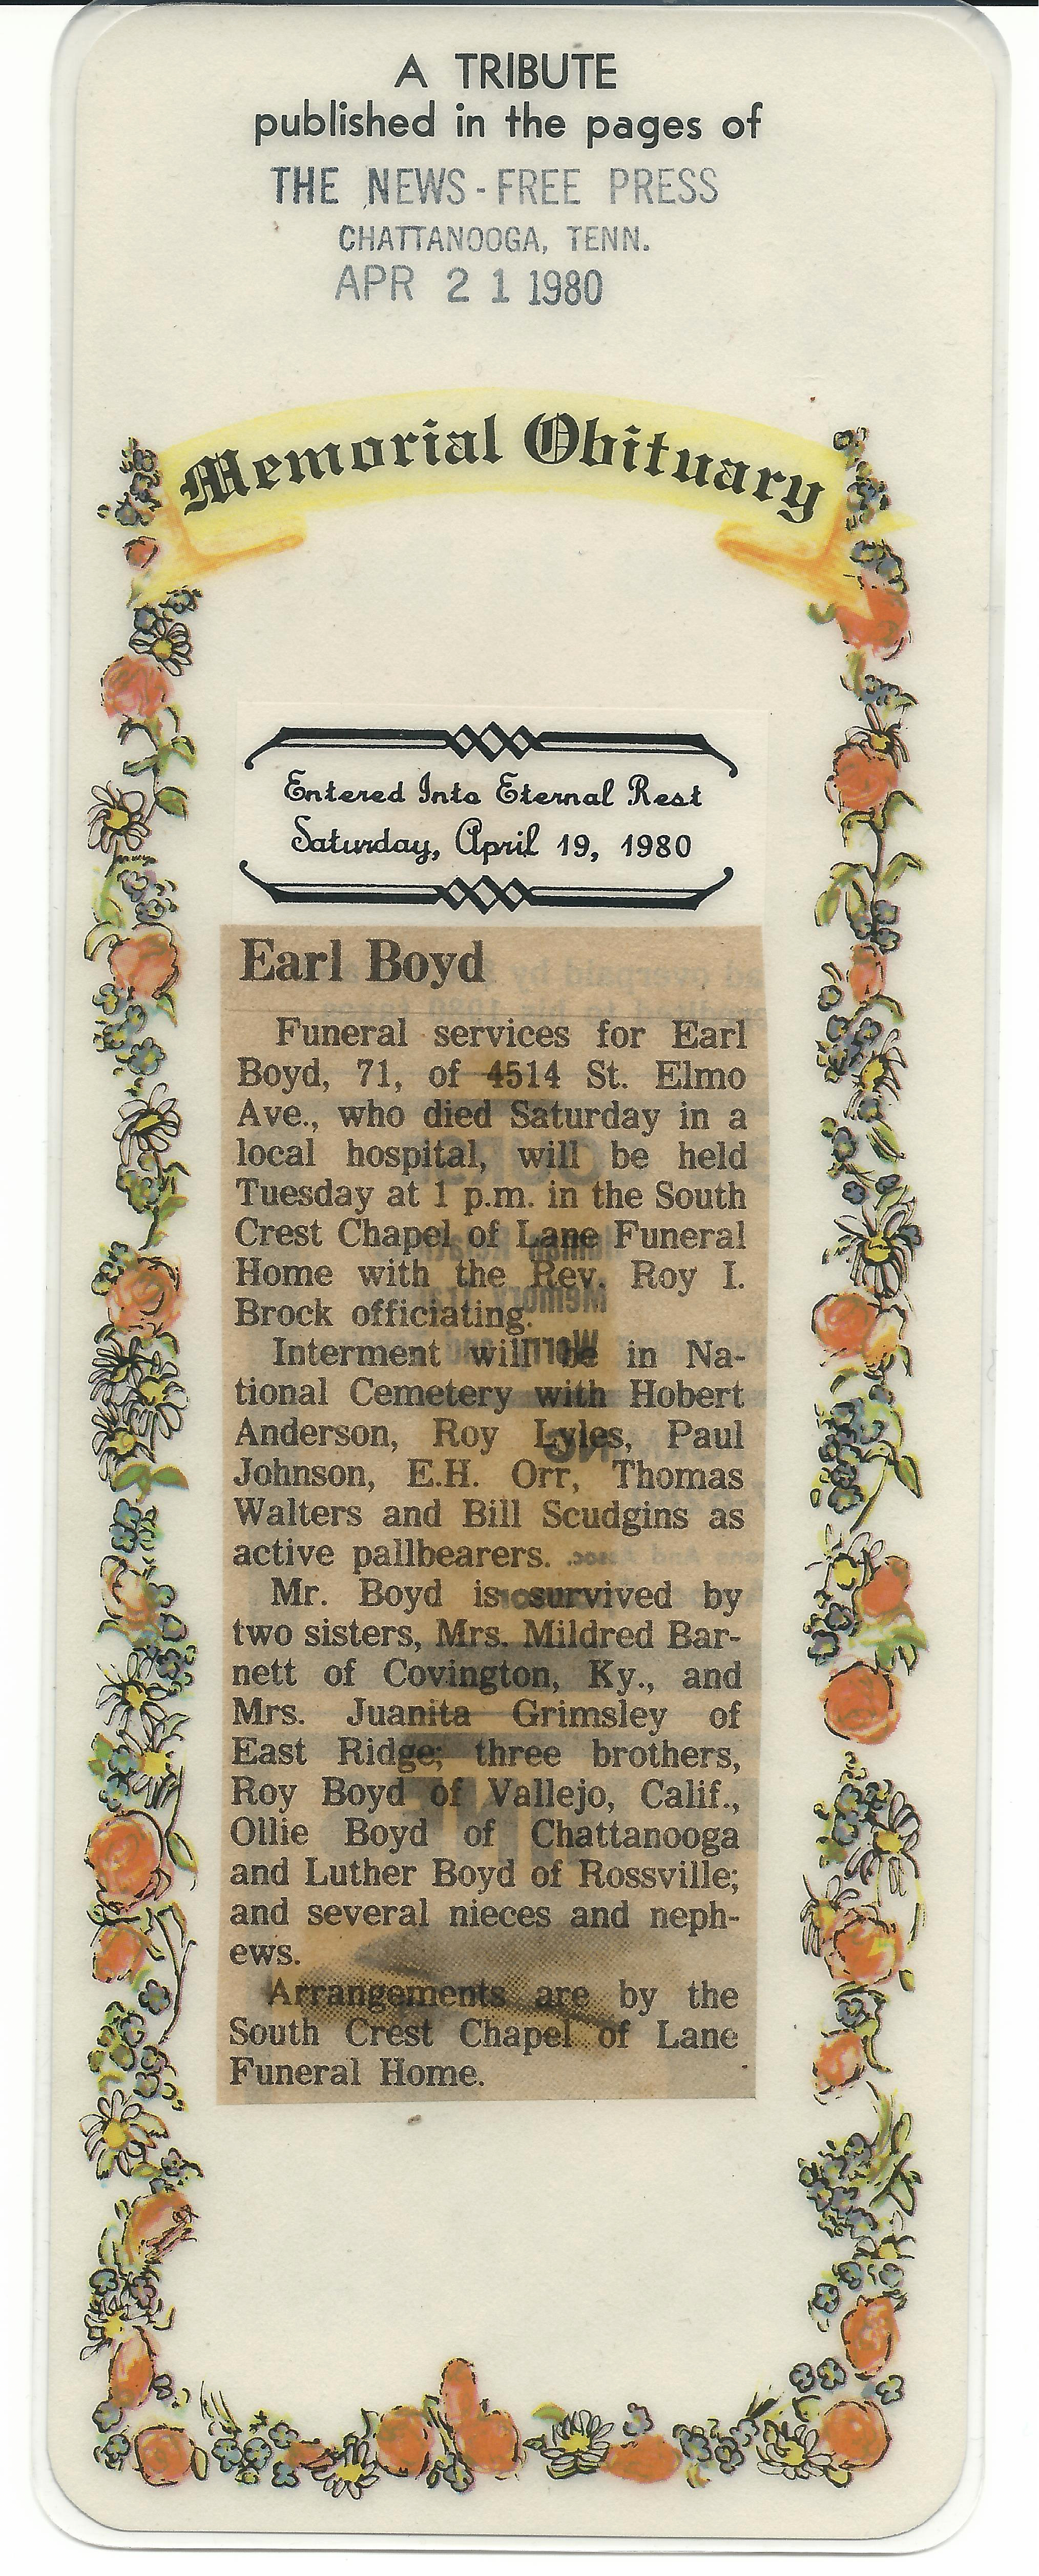 A TRIBUTE
published in the pages of
THE NEWS-FREE PRESS
CHATTANOOGA, TENN.
APR 21 1980
Memorial Obituary
Entered Into Eternal Rest
Saturday, April 19, 1980
Earl Boyd
Funeral services for Earl
Boyd, 71, of 4514 St. Elmo
Ave., who died Saturday in a
local hospital, will be held
Tuesday at 1 p.m. in the South
Crest Chapel of Lane Funeral
Home with the Rev. Roy I.
Brock officiating.
Interment will be in Na-
tional Cemetery with Hobert
Anderson, Roy Lyles, Paul
Johnson, E.H. Orr, Thomas
Walters and Bill Scudgins as
active pallbearers.
Mr. Boyd is survived by
two sisters, Mrs. Mildred Bar-
nett of Covington, Ky., and
Mrs. Juanita Grimsley of
East Ridge; three brothers,
Roy Boyd of Vallejo, Calif.,
Ollie Boyd of Chattanooga
and Luther Boyd of Rossville;
and several nieces and neph-
ews.
Arrangements are by the
South Crest Chapel of Lane
Funeral Home.